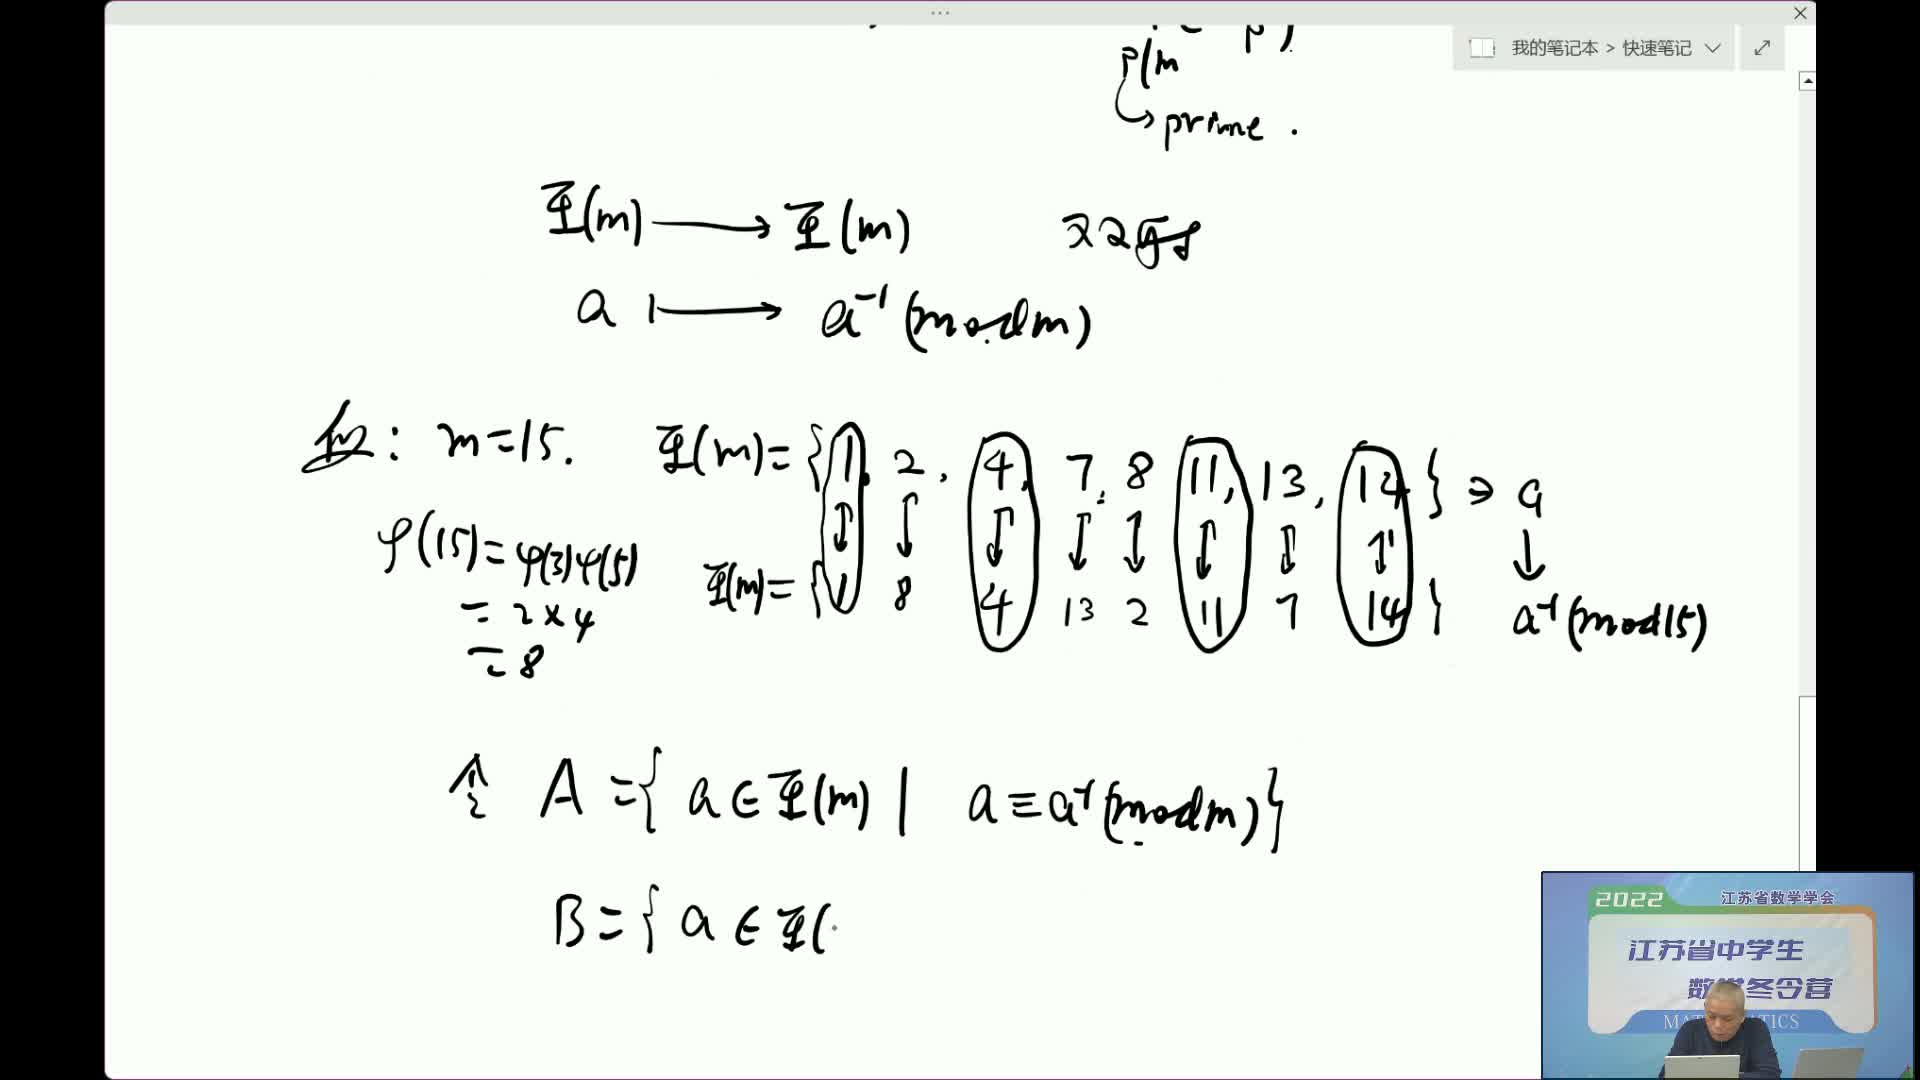 我的笔记本 > 快速笔记
p|m
prime .
Φ(m) ⟶ Φ(m) 双射
a ⟼ a⁻¹ (mod m)
如: m=15. Φ(m)={1, 2, 4, 7, 8 11, 13, 14} ∋ a
φ(15)=φ(3)φ(5)
=2×4
=8
Φ(m)={1 8 4 13 2 11 7 14} a⁻¹(mod 15)
令 A={ a∈Φ(m) | a≡a⁻¹(mod m)}
B={ a ∈ Φ(
2022 江苏省数学学会
江苏省中学生
冬令营